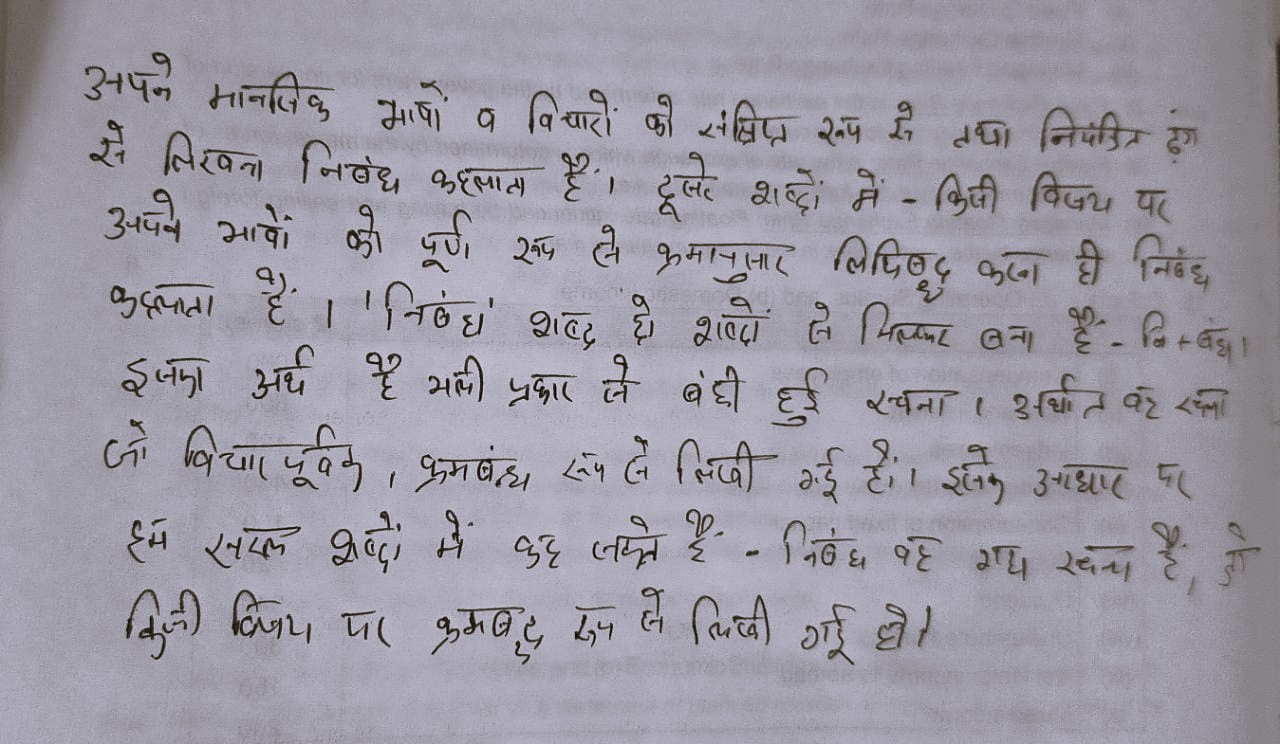 अपने मानसिक भावों व विचारों को संक्षिप्त रूप से तथा नियंत्रित ढंग
से लिखना निबंध कहलाता हैं। दूसरे शब्दों में - किसी विषय पर
अपने भावों को पूर्ण रूप से क्रमानुसार लिपिबद्ध करना ही निबंध
कहलाता हैं। 'निबंध' शब्द दो शब्दों से मिलकर बना हैं - नि + बंध।
इसका अर्थ है भली प्रकार से बंधी हुई रचना । अर्थात वह रचना
जो विचारपूर्वक, क्रमबंध्द रूप से लिखी गई हैं। इसके आधार पर
हम सरल शब्दों में कह सकते हैं - निबंध वह गद्य रचना हैं, जो
किसी विषय पर क्रमबद्ध रूप से लिखी गई हो।